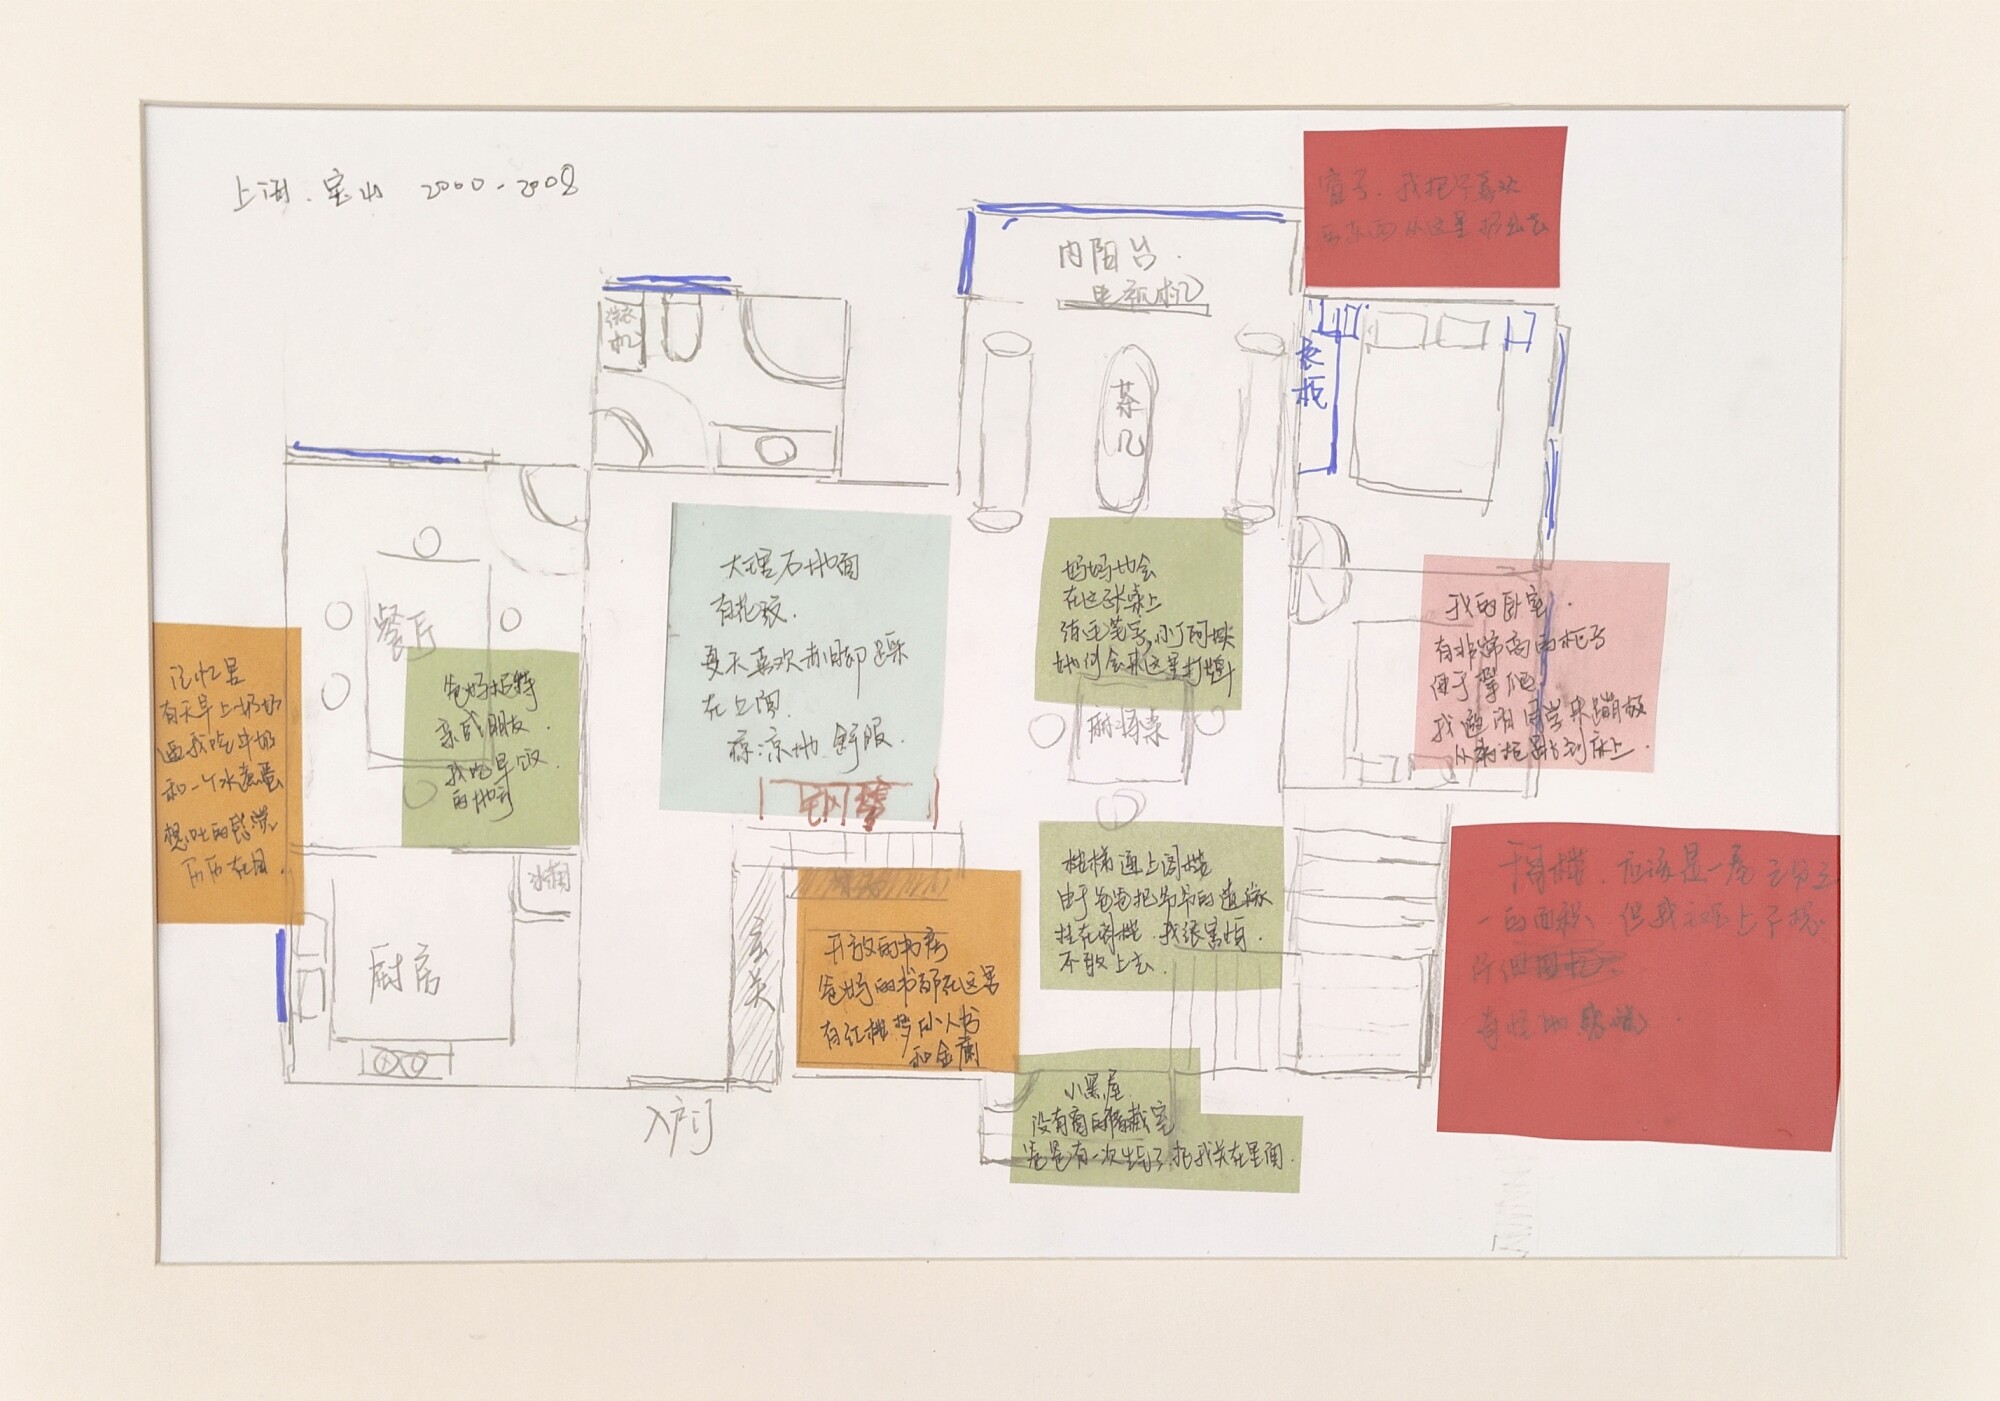 上海.宝山 2000-2008
窗子.我把不喜欢
的东西从这里扔出去
内阳台.
电视机
洗衣
机
衣
柜
茶
几
大理石地面
有花纹.
夏天喜欢赤脚踩
在上面.
凉凉地.舒服.
妈妈也会
在这张桌上
练毛笔字,小丁阿姨
她们会来这里打牌
我的卧室.
有非常高的柜子
用于攀爬.
我邀請同学来蹦极
从柜子跳到床上.
餐厅
爸妈招待
亲戚朋友.
我吃早饭
的地方
记忆里
有天早上奶奶
逼我吃牛奶
和一个水煮蛋
想吐的感觉
历历在目.
麻将桌
钢琴
冰箱
厨房
玄
关
开放的书房
爸妈的书都在这里
有红楼梦小人书
和金庸
楼梯通上阁楼
由于爸爸把爷爷的遗像
挂在阁楼.我很害怕.
不敢上去.
于阁楼.应该是一层三分之
一的面积.但我
奇怪地
小黑屋
没有窗的储藏室
爸爸有一次生气了.把我关在里面.
入户门